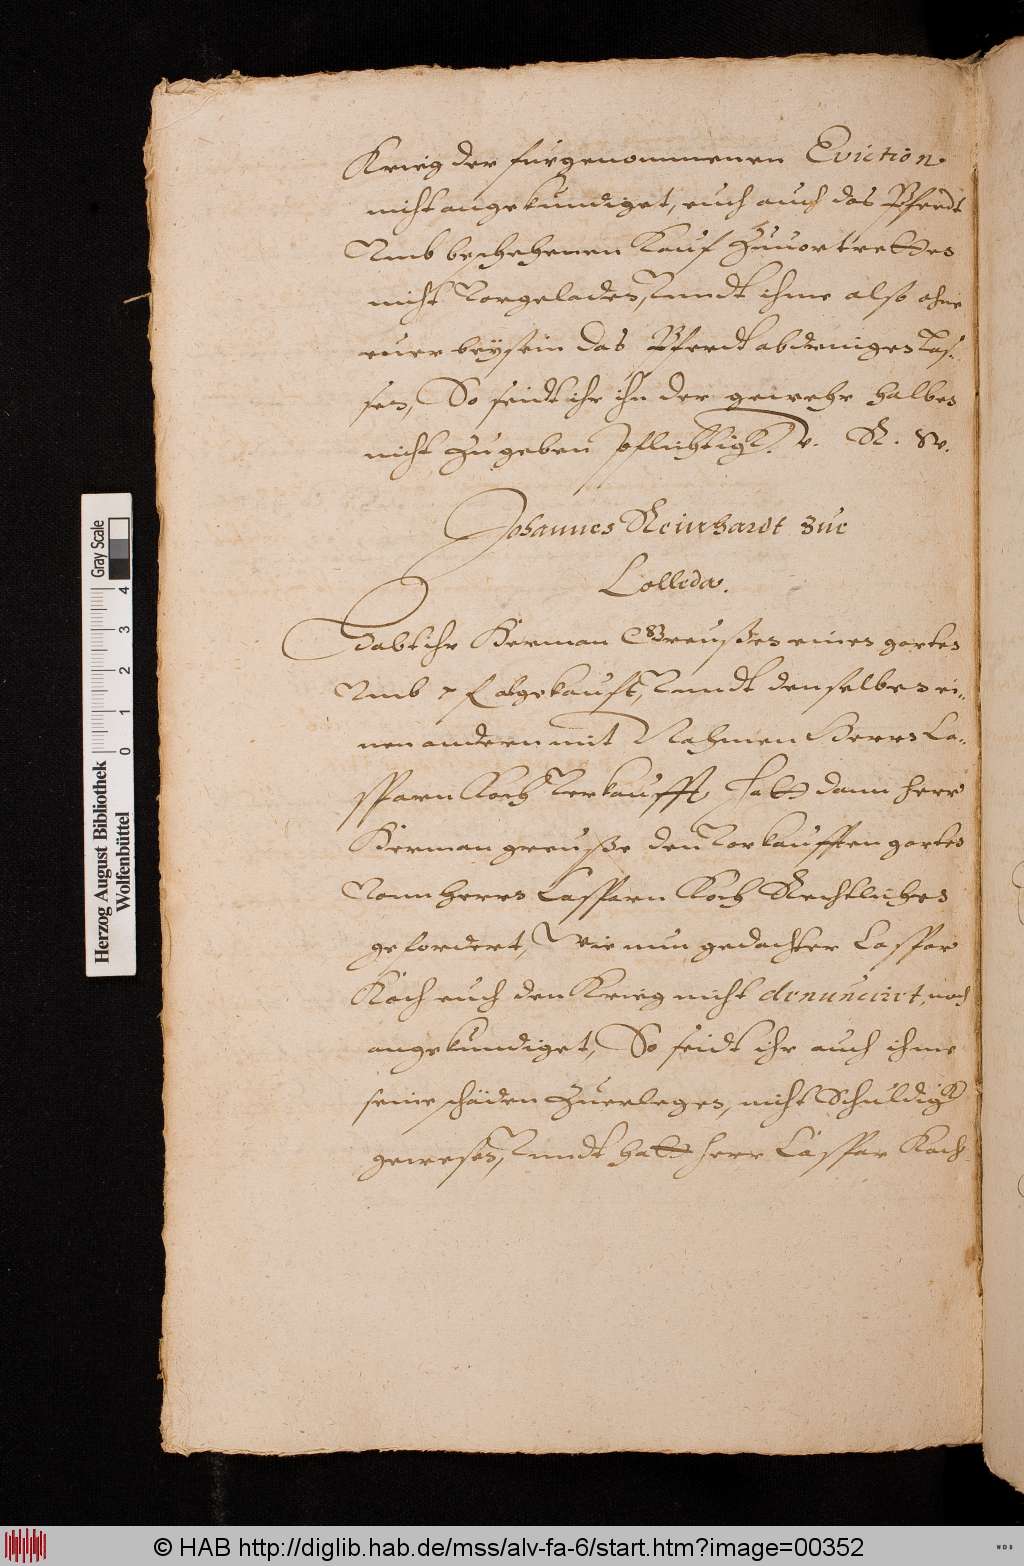 Krieg der fürgenommenen Eviction
nicht angekundiget, euch auch das Pferdt
Vmb beschehenen Kauf Zuuortretten
nicht Vorgeladen, Vnndt ihme also ohne
euer beysein das Pferdt abdringen las-
sen, So seidt ihr ihn der gewehr halben
nicht Zugeben pflichtigk. V. R. W.
Johannes Reinhardt zue
Colleda.
Habt ihr Herman Greußen einen garten
Vmb 7 f abgekaufft, Vnndt denselben ei-
nen andern mit Nahmen Herrn Ca-
sparn Koch Verkaufft, Hatt dann herr
Herman greuße den Vorkaufften garten
Vonn Herrn Casparn Koch Rechtlichen
gefordert, Wie nun gedachter Caspar
Koch euch den Krieg nicht denuncirt, noch
angekundiget, So seidt ihr auch ihme
seine schäden Zuerlegen, nicht Schuldigk
gewesen, Vnndt hatt herr Caspar Koch
Gray Scale
0 1 2 3 4
Herzog August Bibliothek
Wolfenbüttel
© HAB http://diglib.hab.de/mss/alv-fa-6/start.htm?image=00352